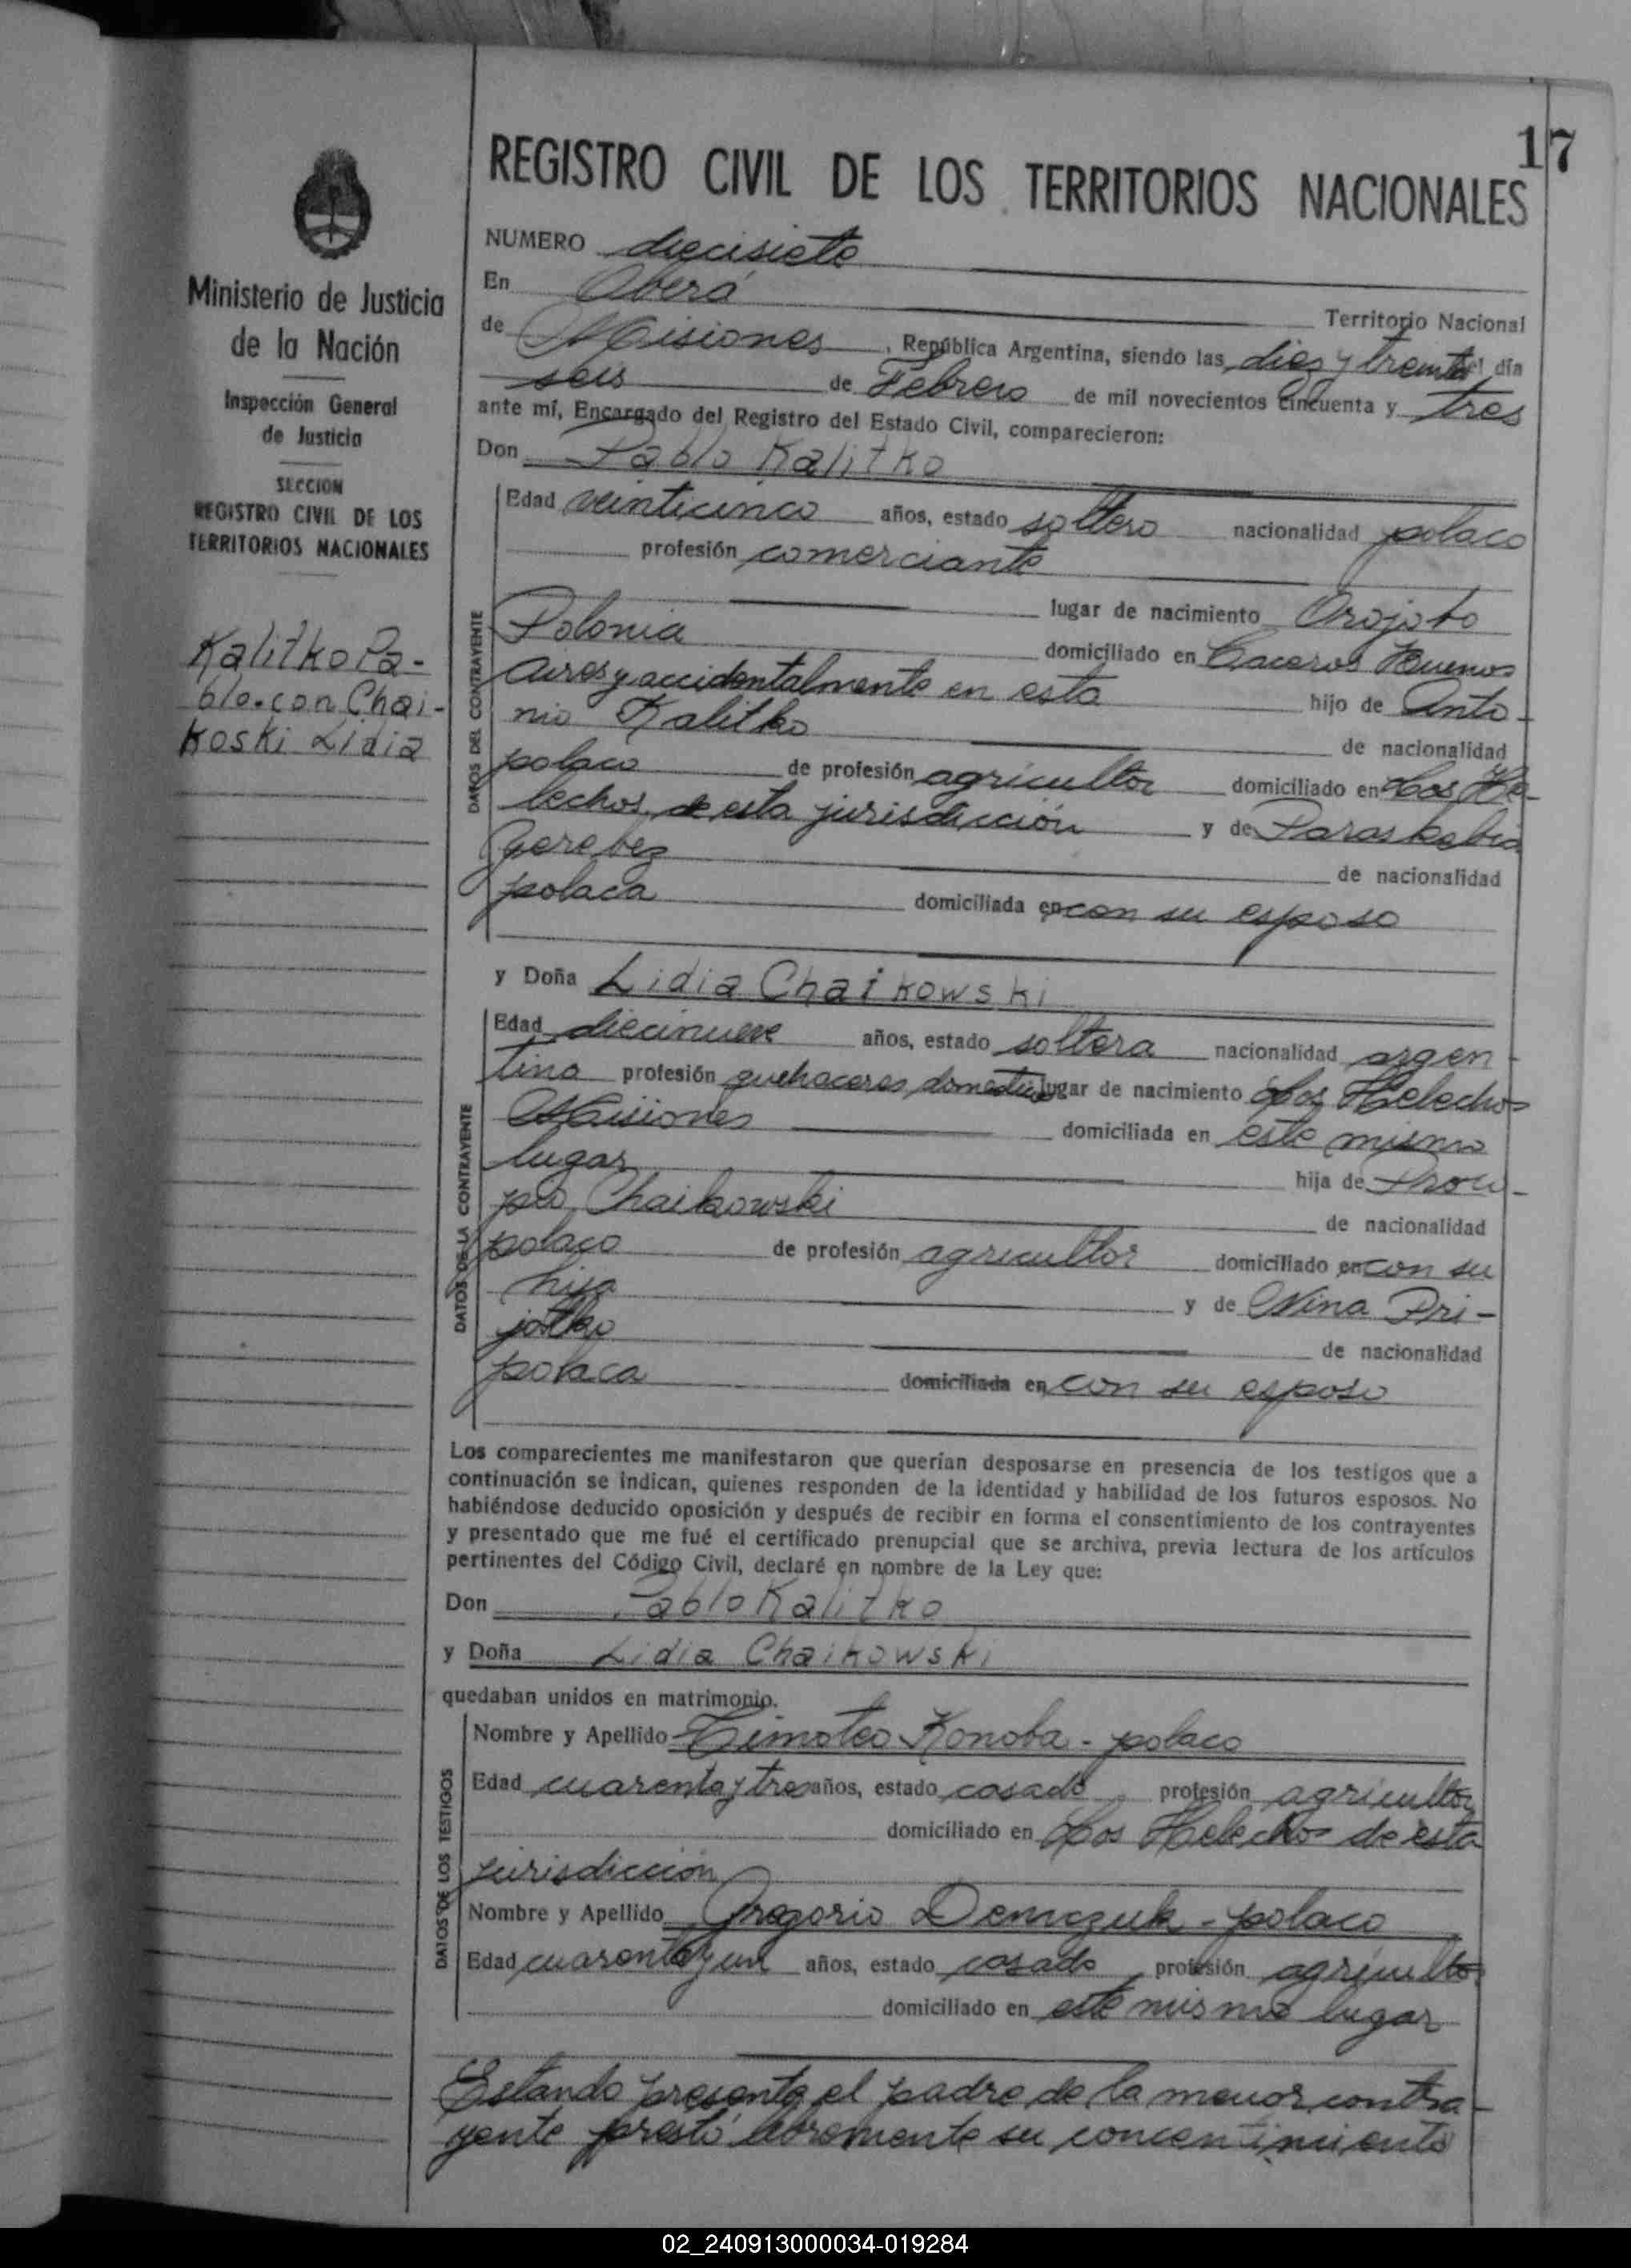 17
REGISTRO CIVIL DE LOS TERRITORIOS NACIONALES
Ministerio de Justicia
de la Nación
Inspección General
de Justicia
SECCION
REGISTRO CIVIL DE LOS
TERRITORIOS NACIONALES
Kalitko Pa-
blo.con Chai-
koski Lidia
NUMERO diecisiete
En Oberá Territorio Nacional
de Misiones, República Argentina, siendo las diez y treinta del día
seis de Febrero de mil novecientos cincuenta y tres
ante mí, Encargado del Registro del Estado Civil, comparecieron:
Don Pablo Kalitko
DATOS DEL CONTRAYENTE
Edad veinticinco años, estado soltero nacionalidad polaco
profesión comerciante
lugar de nacimiento
Polonia domiciliado en Caceros Buenos
Aires y accidentalmente en esta hijo de Anto-
nio Kalitko de nacionalidad
polaco de profesión agricultor domiciliado en Los He-
lechos de esta jurisdicción y de Paraskebia
Gerebez de nacionalidad
polaca domiciliada en con su esposo
y Doña Lidia Chaikowski
DATOS DE LA CONTRAYENTE
Edad diecinueve años, estado soltera nacionalidad argen-
tina profesión quehaceres domesticos lugar de nacimiento Los Helechos
Misiones domiciliada en este mismo
lugar hija de Proco-
pio Chaikowski de nacionalidad
polaco de profesión agricultor domiciliado en con su
hija y de Nina Pri-
de nacionalidad
polaca domiciliada en con su esposo
Los comparecientes me manifestaron que querían desposarse en presencia de los testigos que a
continuación se indican, quienes responden de la identidad y habilidad de los futuros esposos. No
habiéndose deducido oposición y después de recibir en forma el consentimiento de los contrayentes
y presentado que me fué el certificado prenupcial que se archiva, previa lectura de los artículos
pertinentes del Código Civil, declaré en nombre de la Ley que:
Don Pablo Kalitko
y Doña Lidia Chaikowski
quedaban unidos en matrimonio.
DATOS DE LOS TESTIGOS
Nombre y Apellido Timoteo Konoba - polaco
Edad cuarenta y tres años, estado casado profesión agricultor
domiciliado en Los Helechos de esta
jurisdicción
Nombre y Apellido Gregorio Demczuk - polaco
Edad cuarenta y un años, estado casado profesión agricultor
domiciliado en este mismo lugar
Estando presente el padre de la menor contra-
yente prestó libremente su concentimiento
02_240913000034-019284